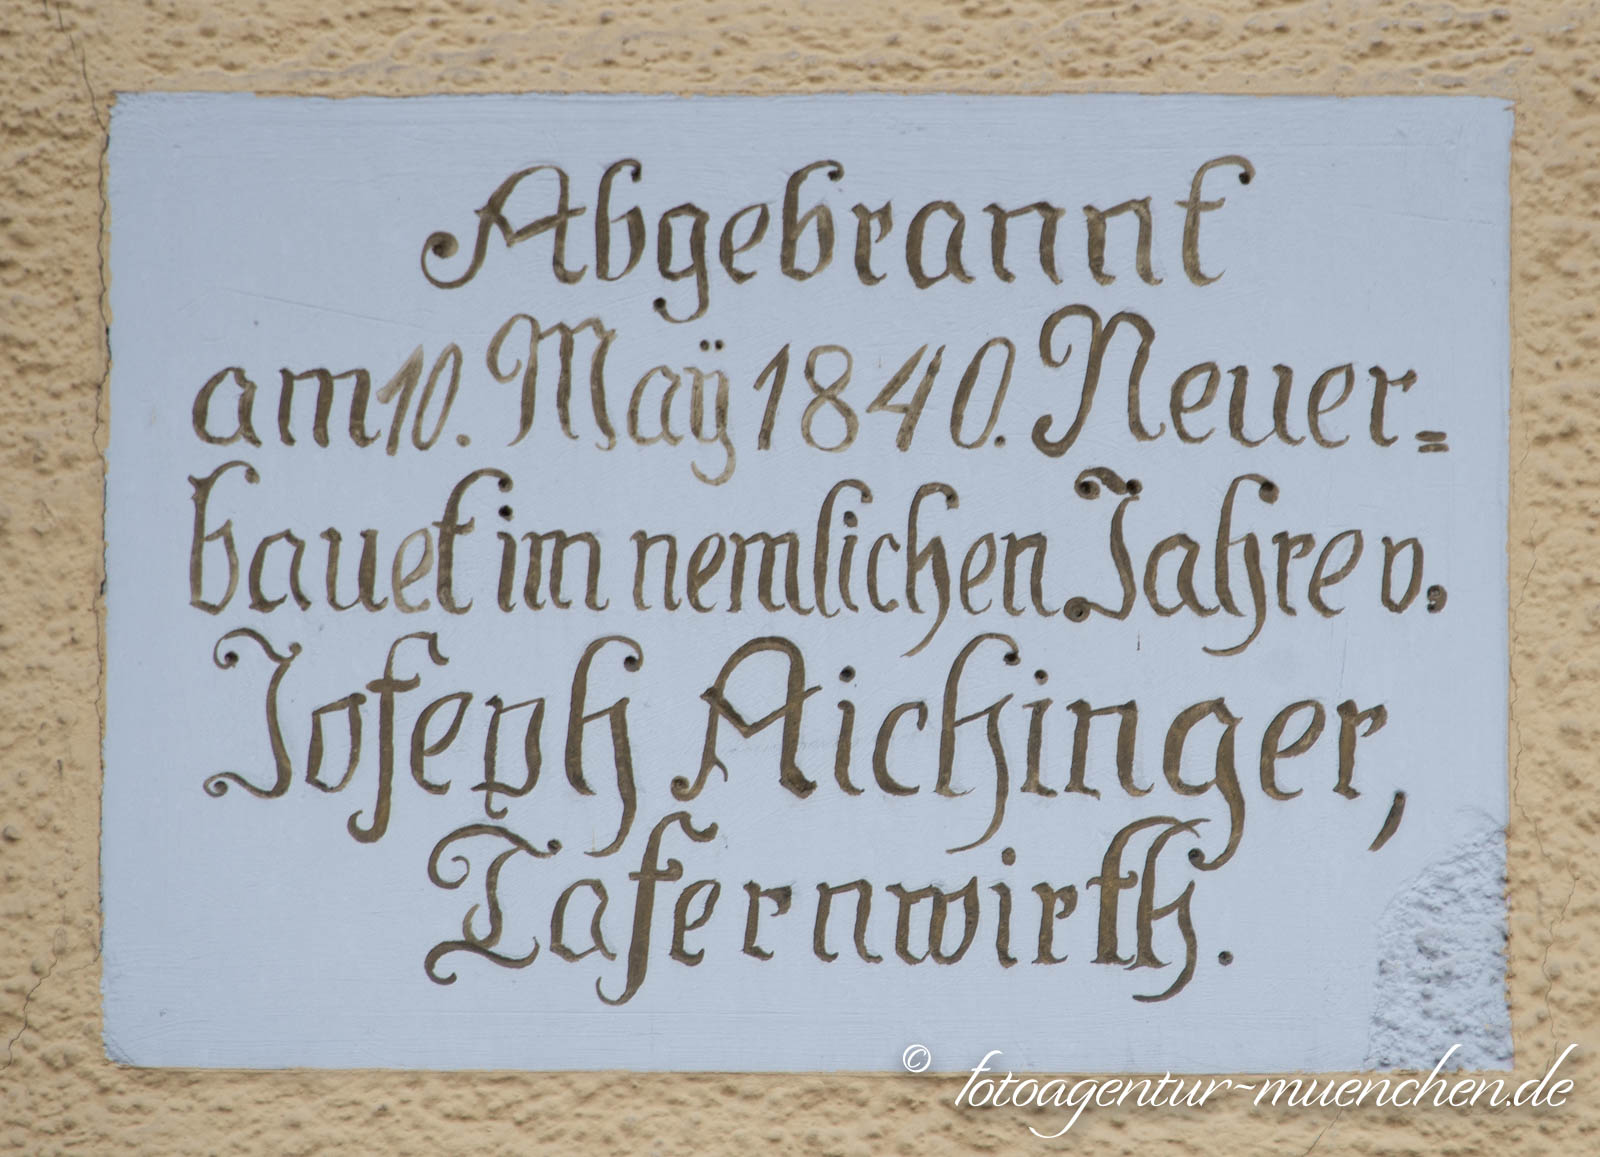 Abgebrannt
am 10. Maÿ 1840. Neuer=
bauet im nemlichen Jahre v.
Joseph Aichinger,
Tafernwirth.
© fotoagentur-muenchen.de